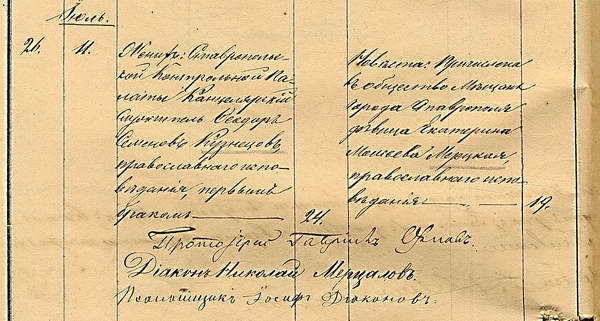 Июль.
26. 11.
Женихъ: Ставрополь-
ской Контрольной Па-
латы Канцелярскій
Служитель Ѳеодоръ
Семеновъ Кузнецовъ,
православнаго испо-
вѣданія, первымъ
бракомъ 24.
Невѣста: Причислена
въ общество Мѣщанъ
города Ставрополя
дѣвица Екатерина
Моисеева Мерцкая,
православнаго испо-
вѣданія 19.
Протоіерей Гавріилъ
Діаконъ Николай Мерцаловъ.
Псаломщикъ Іосифъ Дьяконовъ.